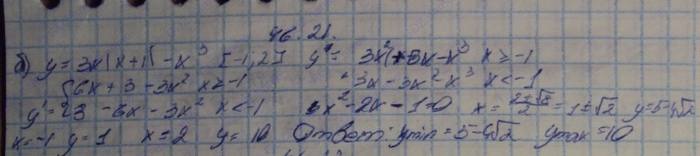 46.21.
б) y = 3x|x+1| - x³ [-1,2] y = 3x² + 3x - x³ x ≥ -1
{6x + 3 - 3x² x ≥ -1 -3x - 3x² - x³ x < -1
y' = {-3 - 6x - 3x² x < -1 x² - 2x - 1 = 0 x = = 1 ± √2 y = 5 - 4√2
x = -1 y = 1 x = 2 y = 10 Ответ: ymin = 5 - 4√2 ymax = 10